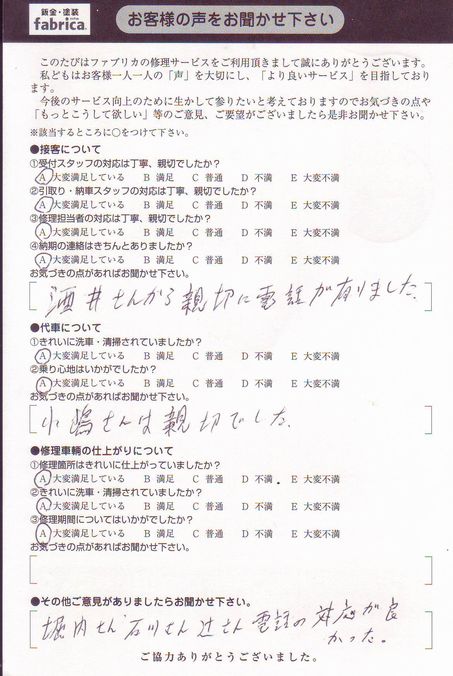 鈑金・塗装
fabrica.
お客様の声をお聞かせ下さい
このたびはファブリカの修理サービスをご利用頂きまして誠にありがとうございます。
私どもはお客様一人一人の「声」を大切にし、「より良いサービス」を目指しており
ます。
今後のサービス向上のために生かして参りたいと考えておりますのでお気づきの点や
「もっとこうして欲しい」等のご意見、ご要望がございましたら是非お聞かせ下さい。
※該当するところに○をつけて下さい。
●接客について
①受付スタッフの対応は丁寧、親切でしたか?
A 大変満足している B 満足 C 普通 D 不満 E 大変不満
②引取り・納車スタッフの対応は丁寧、親切でしたか?
A 大変満足している B 満足 C 普通 D 不満 E 大変不満
③修理担当者の対応は丁寧、親切でしたか?
A 大変満足している B 満足 C 普通 D 不満 E 大変不満
④納期の連絡はきちんとありましたか?
A 大変満足している B 満足 C 普通 D 不満 E 大変不満
お気づきの点があればお聞かせ下さい。
酒井さんから親切に電話が有りました.
●代車について
①きれいに洗車・清掃されていましたか?
A 大変満足している B 満足 C 普通 D 不満 E 大変不満
②乗り心地はいかがでしたか?
A 大変満足している B 満足 C 普通 D 不満 E 大変不満
お気づきの点があればお聞かせ下さい。
小嶋さんは親切でした.
●修理車輌の仕上がりについて
①修理箇所はきれいに仕上がっていましたか?
A 大変満足している B 満足 C 普通 D 不満 E 大変不満
②きれいに洗車・清掃されていましたか?
A 大変満足している B 満足 C 普通 D 不満 E 大変不満
③修理期間についてはいかがでしたか?
A 大変満足している B 満足 C 普通 D 不満 E 大変不満
お気づきの点があればお聞かせ下さい。
●その他ご意見がありましたらお聞かせ下さい。
堀内さん 石川さん 辻さん 電話の対応が良
かった。
ご協力ありがとうございました。